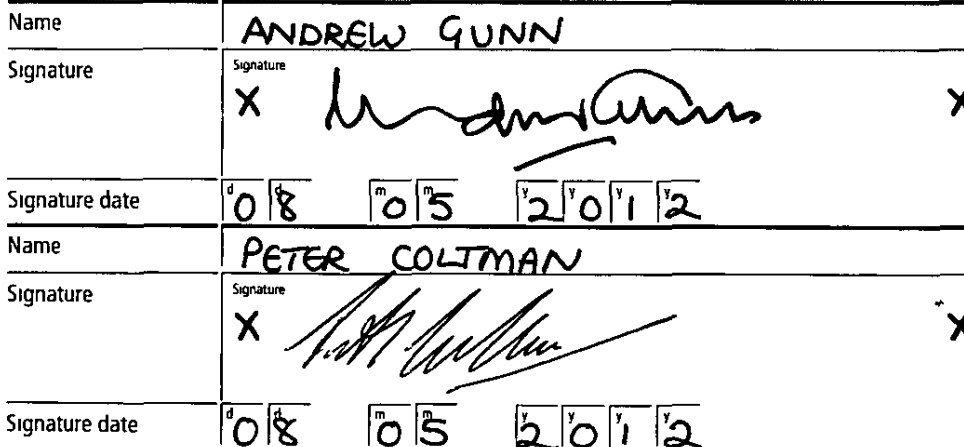 Name ANDREW GUNN
Signature Signature
X X
Signature date d0 d8 m0 m5 y2 y0 y1 y2
Name PETER COLTMAN
Signature Signature
X X
Signature date d0 d8 m0 m5 y2 y0 y1 y2